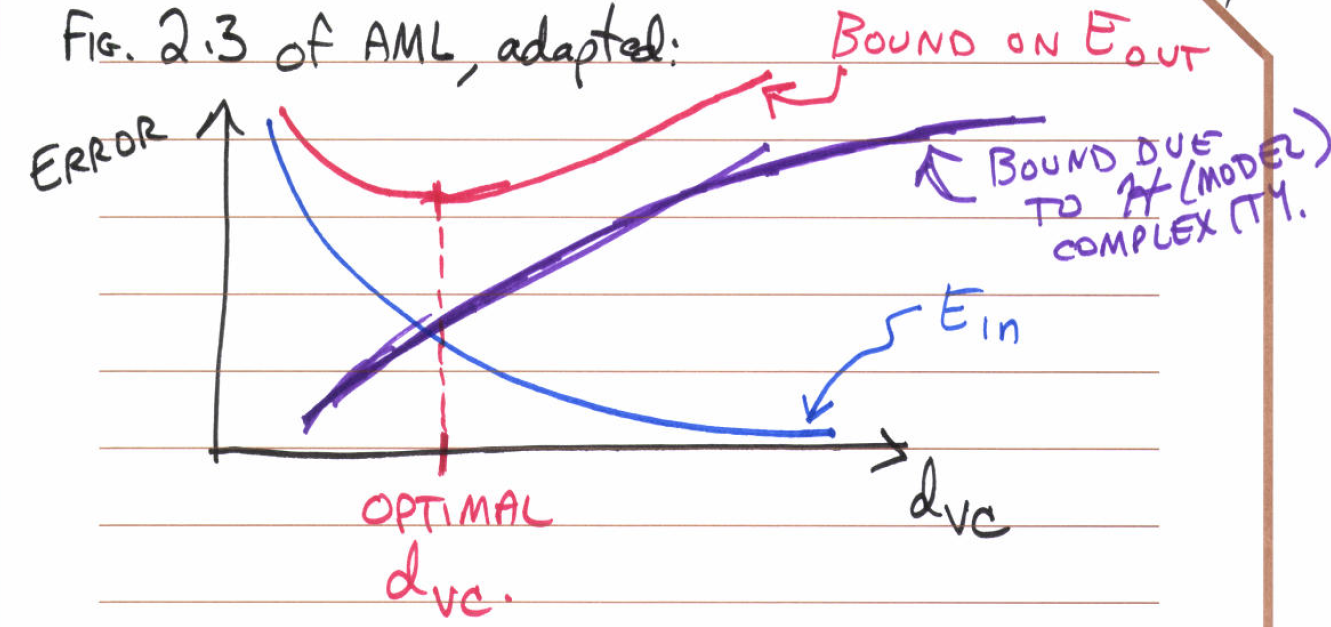 FIG. 2.3 of AML, adapted:
BOUND ON E_OUT
ERROR
BOUND DUE
TO H (MODEL)
COMPLEXITY.
E_in
d_VC
OPTIMAL
d_VC.